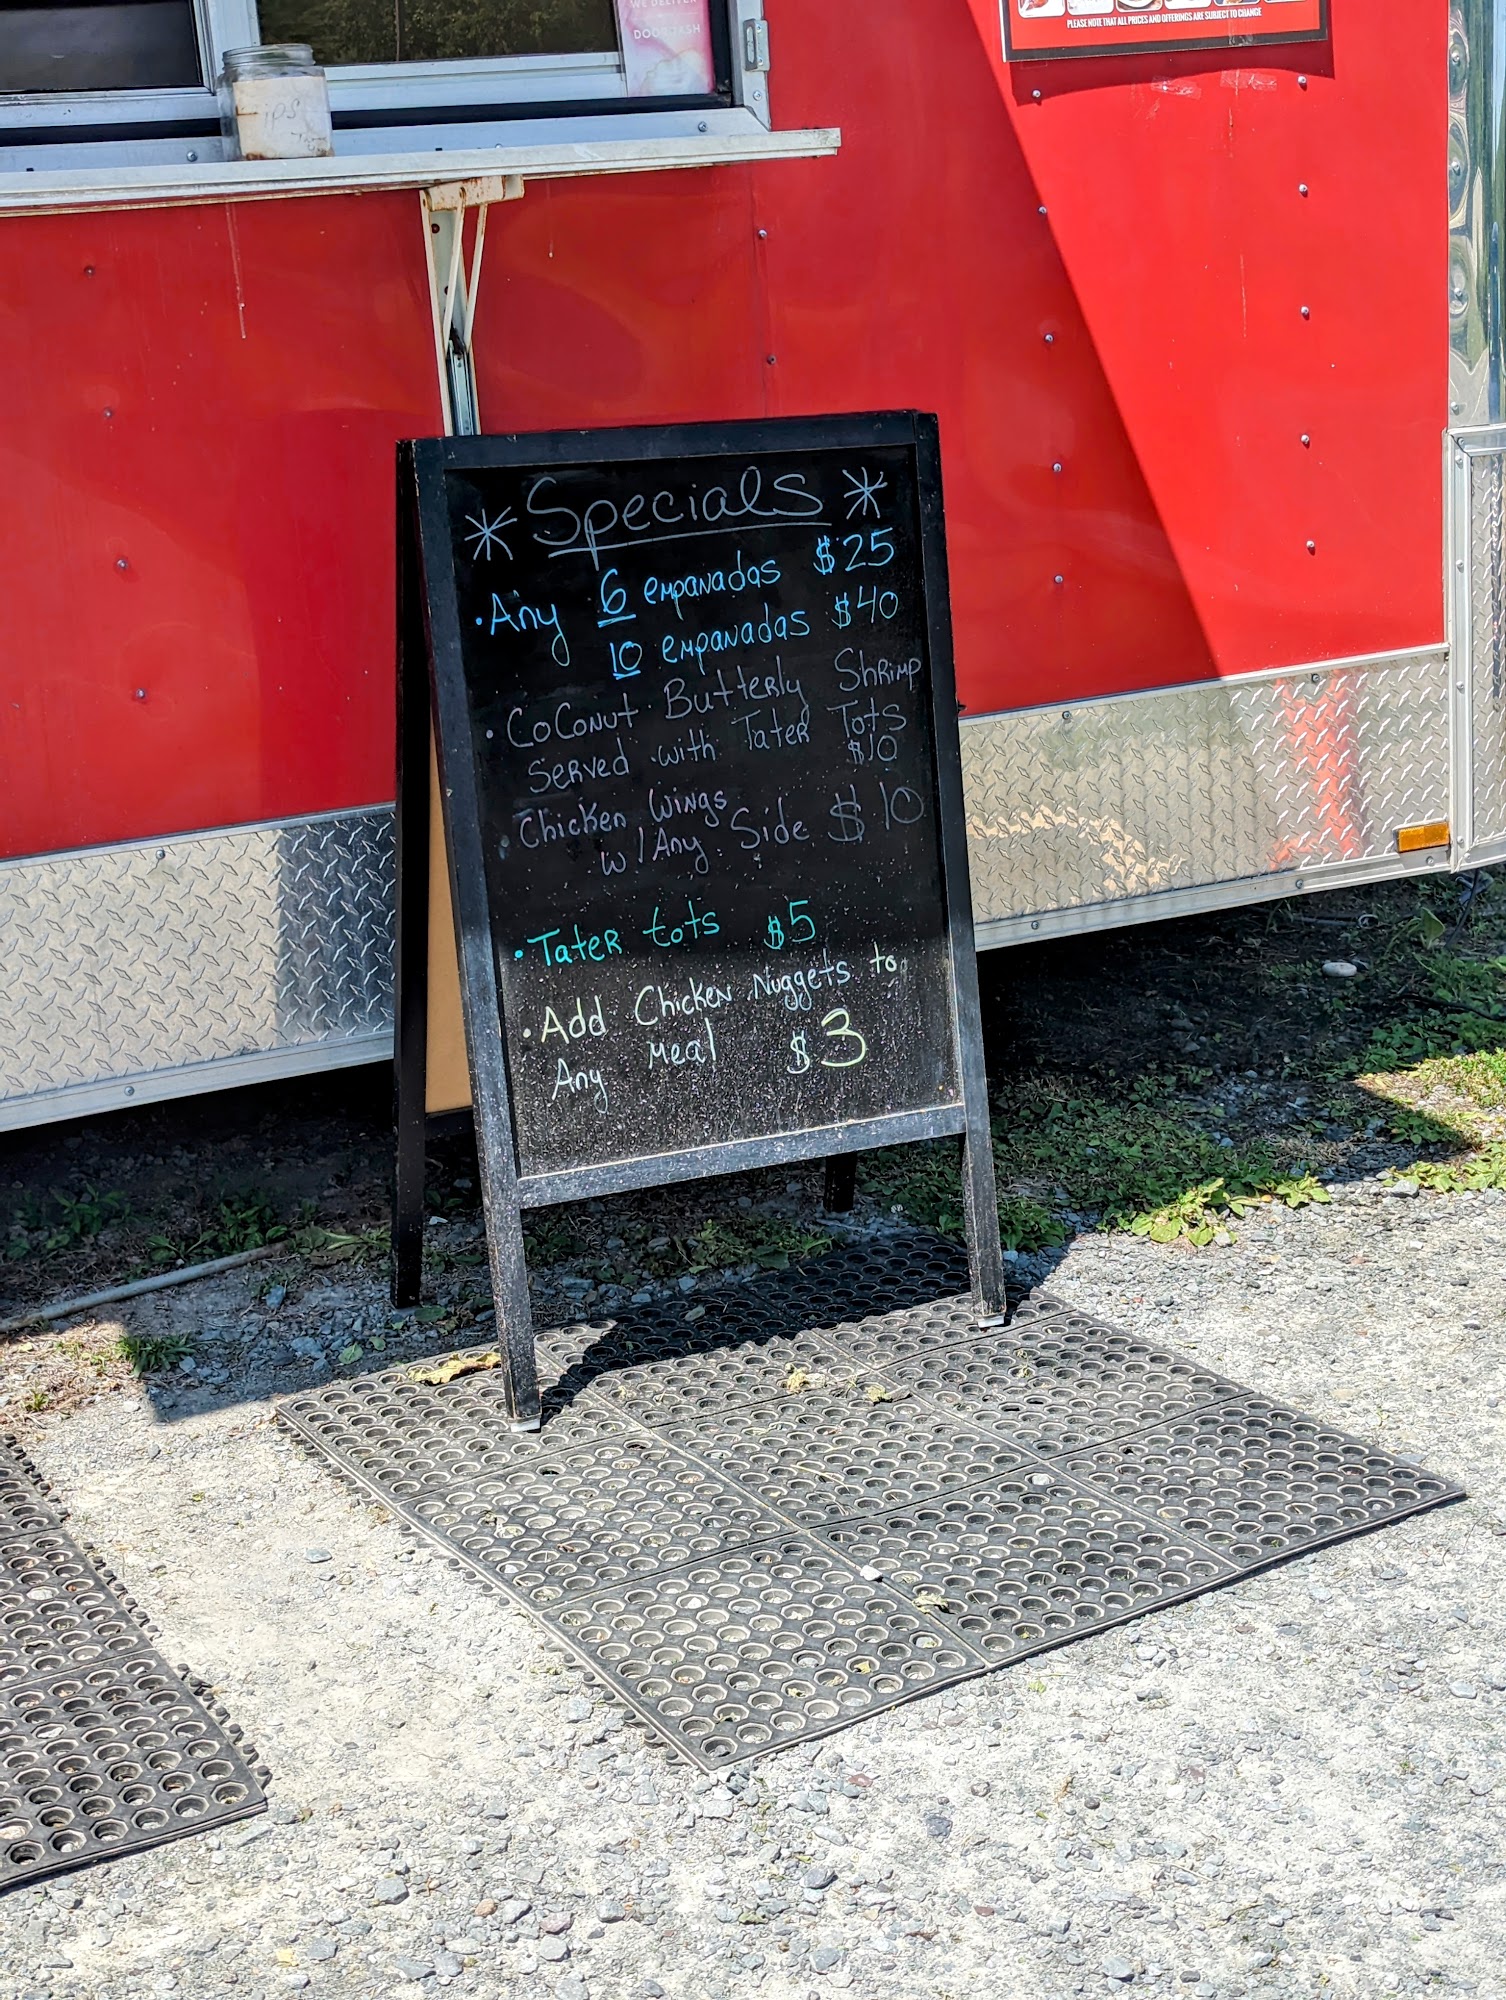 WE DELIVER
DOORDASH
PLEASE NOTE THAT ALL PRICES AND OFFERINGS ARE SUBJECT TO CHANGE
* Specials *
• Any 6 empanadas $25
10 empanadas $40
• Coconut Butterly Shrimp
Served with Tater Tots
$10
• Chicken Wings
w/Any Side $10
• Tater tots $5
• Add Chicken Nuggets to
Any meal $3